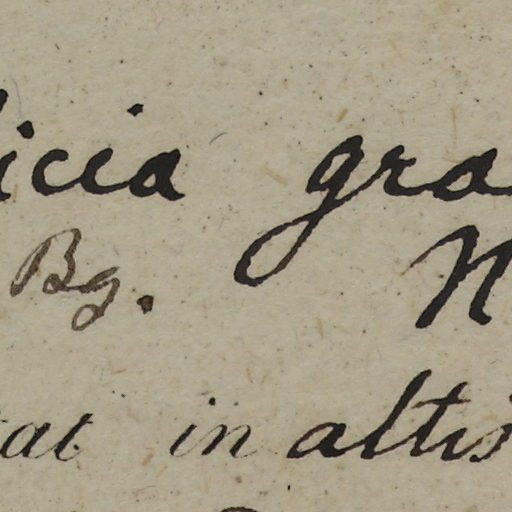 icia gra
Bg. N
tat in altis